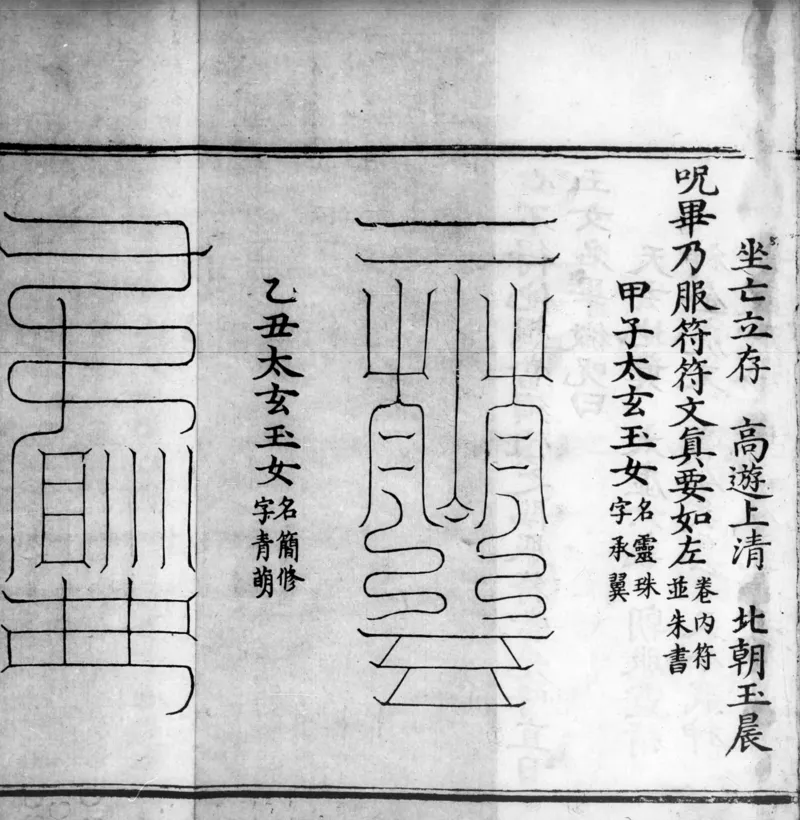 坐亡立存　高遊上清　北朝玉晨
呪畢乃服符符文真要如左卷內符並朱書
甲子太玄玉女名靈珠字承翼
乙丑太玄玉女名簡修字青萌